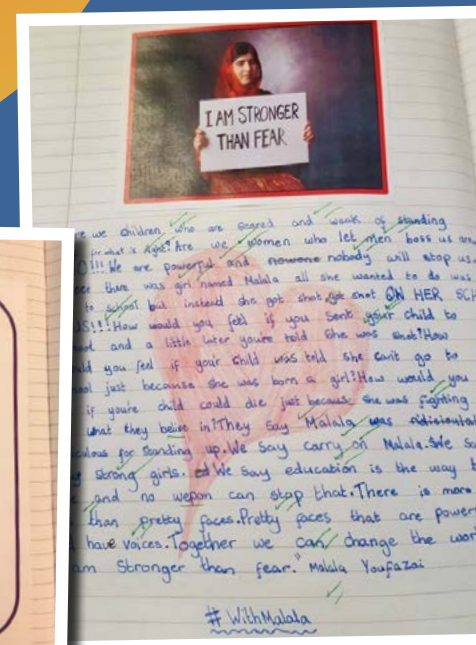 I AM STRONGER
THAN FEAR
we children who are scared and weak of standing
for what is right? Are we women who let men boss us
!!! We are powerful and nowone nobody will stop us.
there was girl named Malala all she wanted to do was
to school but instead she got shot got shot ON HER
!!! How would you feel if you sent your child to
and a little later you're told she was shot? How
you feel if your child was told she can't go to
just because she was born a girl? How would you
if you're child could die just because she was fighting
what they belive in? They say Malala was ridiculo
for standing up. We say carry on Malala. We
strong girls. We say education is the way
and no wepon can stop that. There is more
than pretty faces. Pretty faces that are
have voices. Together we can change the
am Stronger than fear." Malala Youfazai
# WithMalala